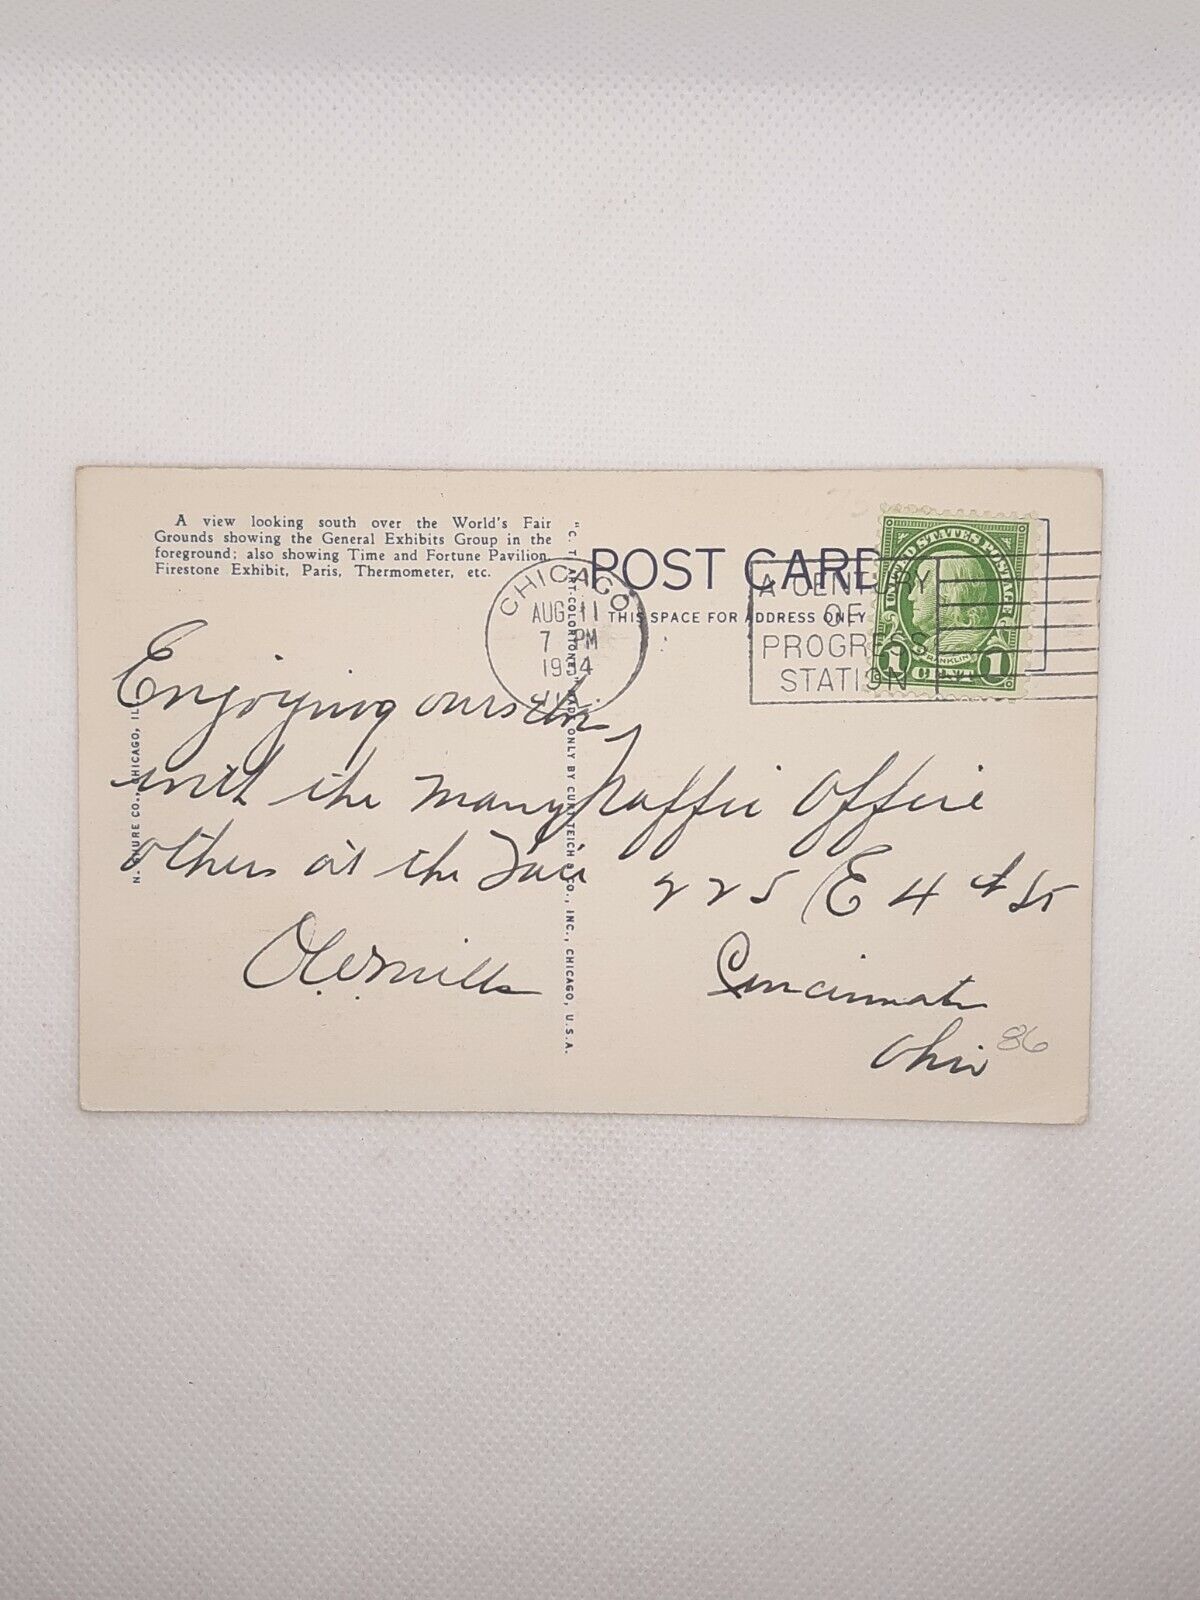 A view looking south over the World's Fair
Grounds showing the General Exhibits Group in the
foreground; also showing Time and Fortune Pavilion,
Firestone Exhibit, Paris, Thermometer, etc.
POST CARD
THIS SPACE FOR ADDRESS ONLY
CHICAGO
AUG 11
7 PM
1934
A CENTURY
OF
PROGRESS
STATION
UNITED STATES POSTAGE
FRANKLIN
1 CENT 1
Enjoying
with the many
others at the Fair
Traffic Office
225 E 4th St
Cincinnati
Ohio
86
N. SHURE CO., CHICAGO, ILL.
"C. T. ART-COLORTONE" MADE ONLY BY CURT TEICH & CO., INC., CHICAGO, U.S.A.